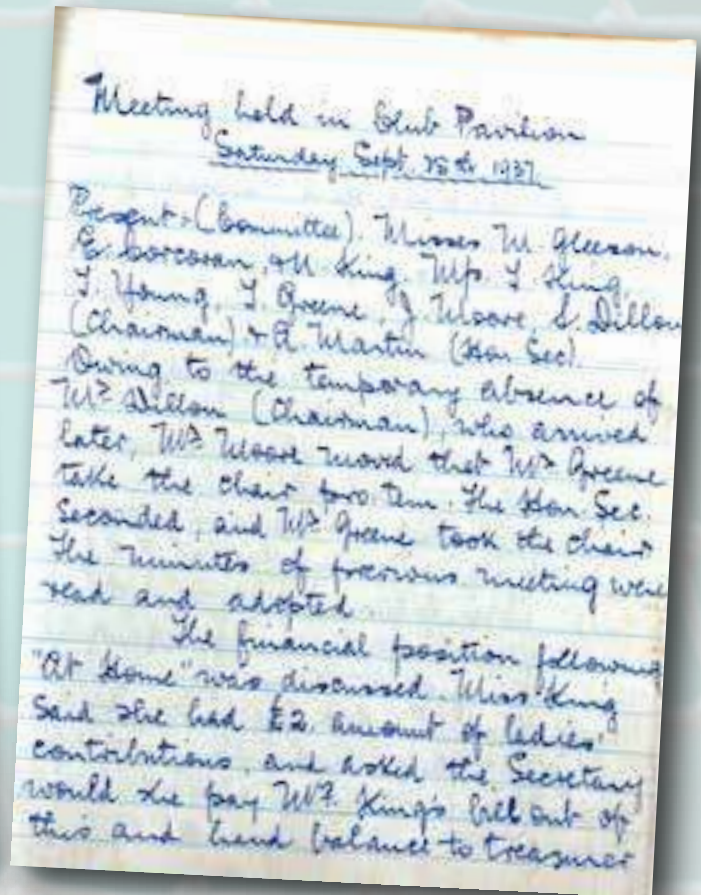 Meeting held in Club Pavilion
Saturday Sept. 25th 1937.
Present:- (Committee). Misses M. Gleeson,
E. Corcoran, & M. King. Mrs. King,
T. Young, T. Greene, J. Moore, L. Dillon
(Chairman) & A. Martin (Hon Sec).
Owing to the temporary absence of
Mr Dillon (Chairman), who arrived
later, Mr Moore moved that Mr Greene
take the chair pro. tem. The Hon. Sec.
Seconded, and Mr Greene took the chair
The minutes of previous meeting were
read and adopted.
The financial position following
"At Home" was discussed. Miss King
said she had £2. amount of ladies'
contributions, and asked the Secretary
would she pay Mr. King's bill out of
this and hand balance to treasurer